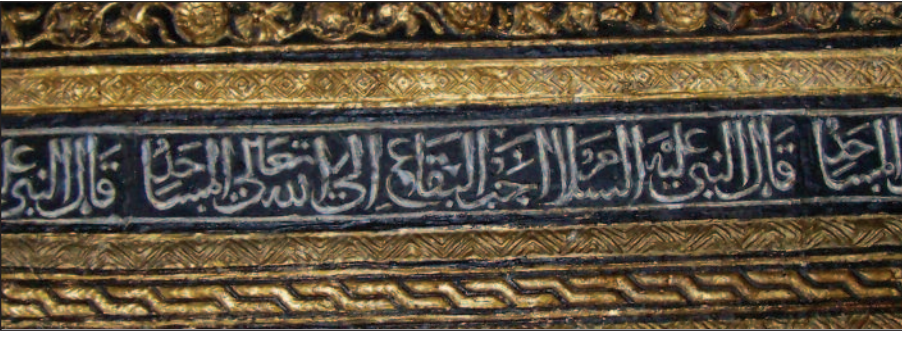 المساجد قال النبي عليه السلام احب البقاع الى الله تعالى المساجد قال النبي